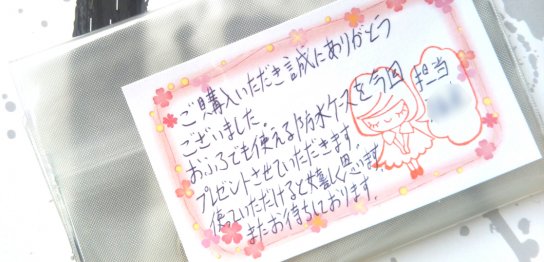 ご購入いただき誠にありがとう
ございました。
おふろでも使える防水ケースを今回
プレゼントさせていただきます。
使っていただけると嬉しく思います
またお待ちしております。
担当